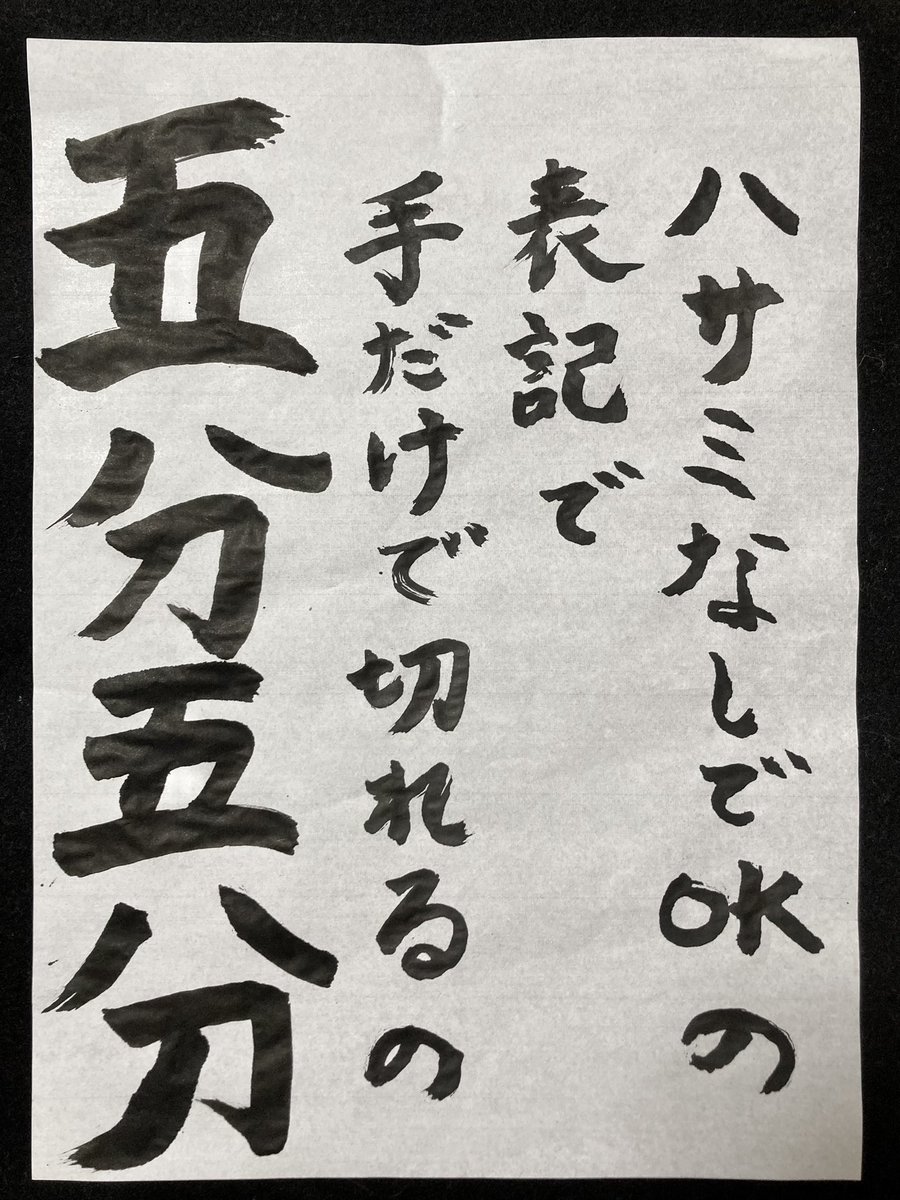 ハサミなしでOKの
表記で
手だけで切れるの
五分五分